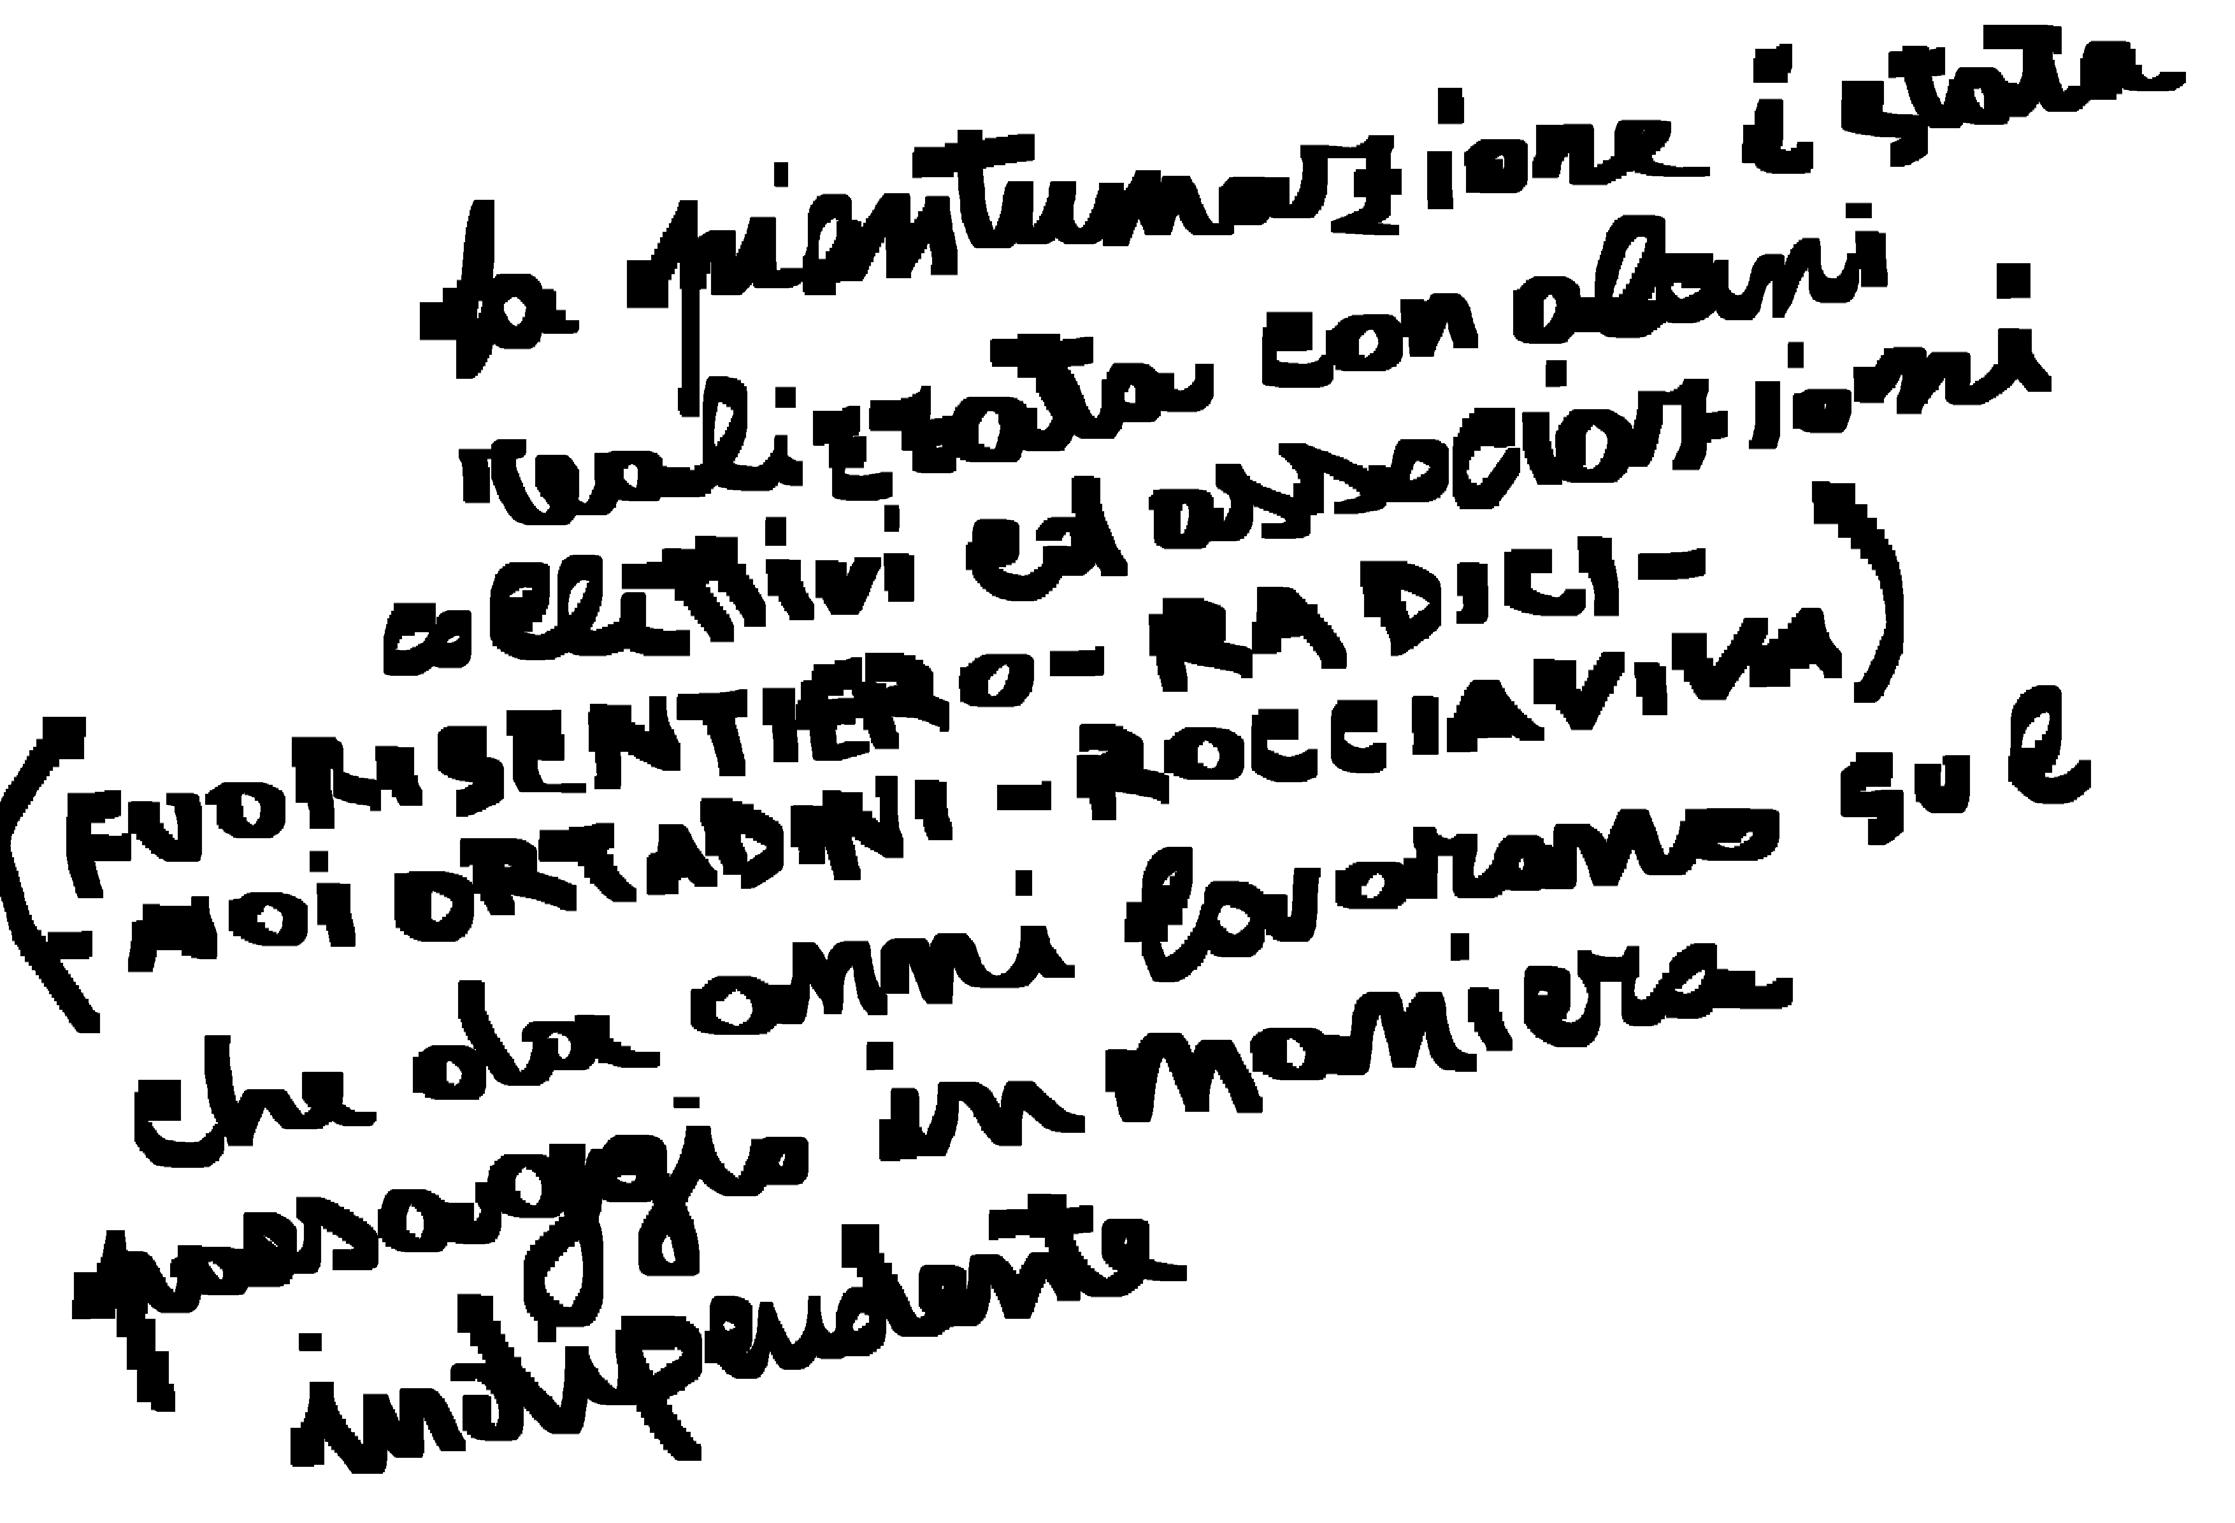 la piantumazione è stata
realizzata con alcuni
collettivi ed associazioni
(FUORISENTIERO - RADICI -
NOI ORTADINI - ROCCIAVIVA)
che da anni lavorano sul
paesaggio in maniera
indipendente